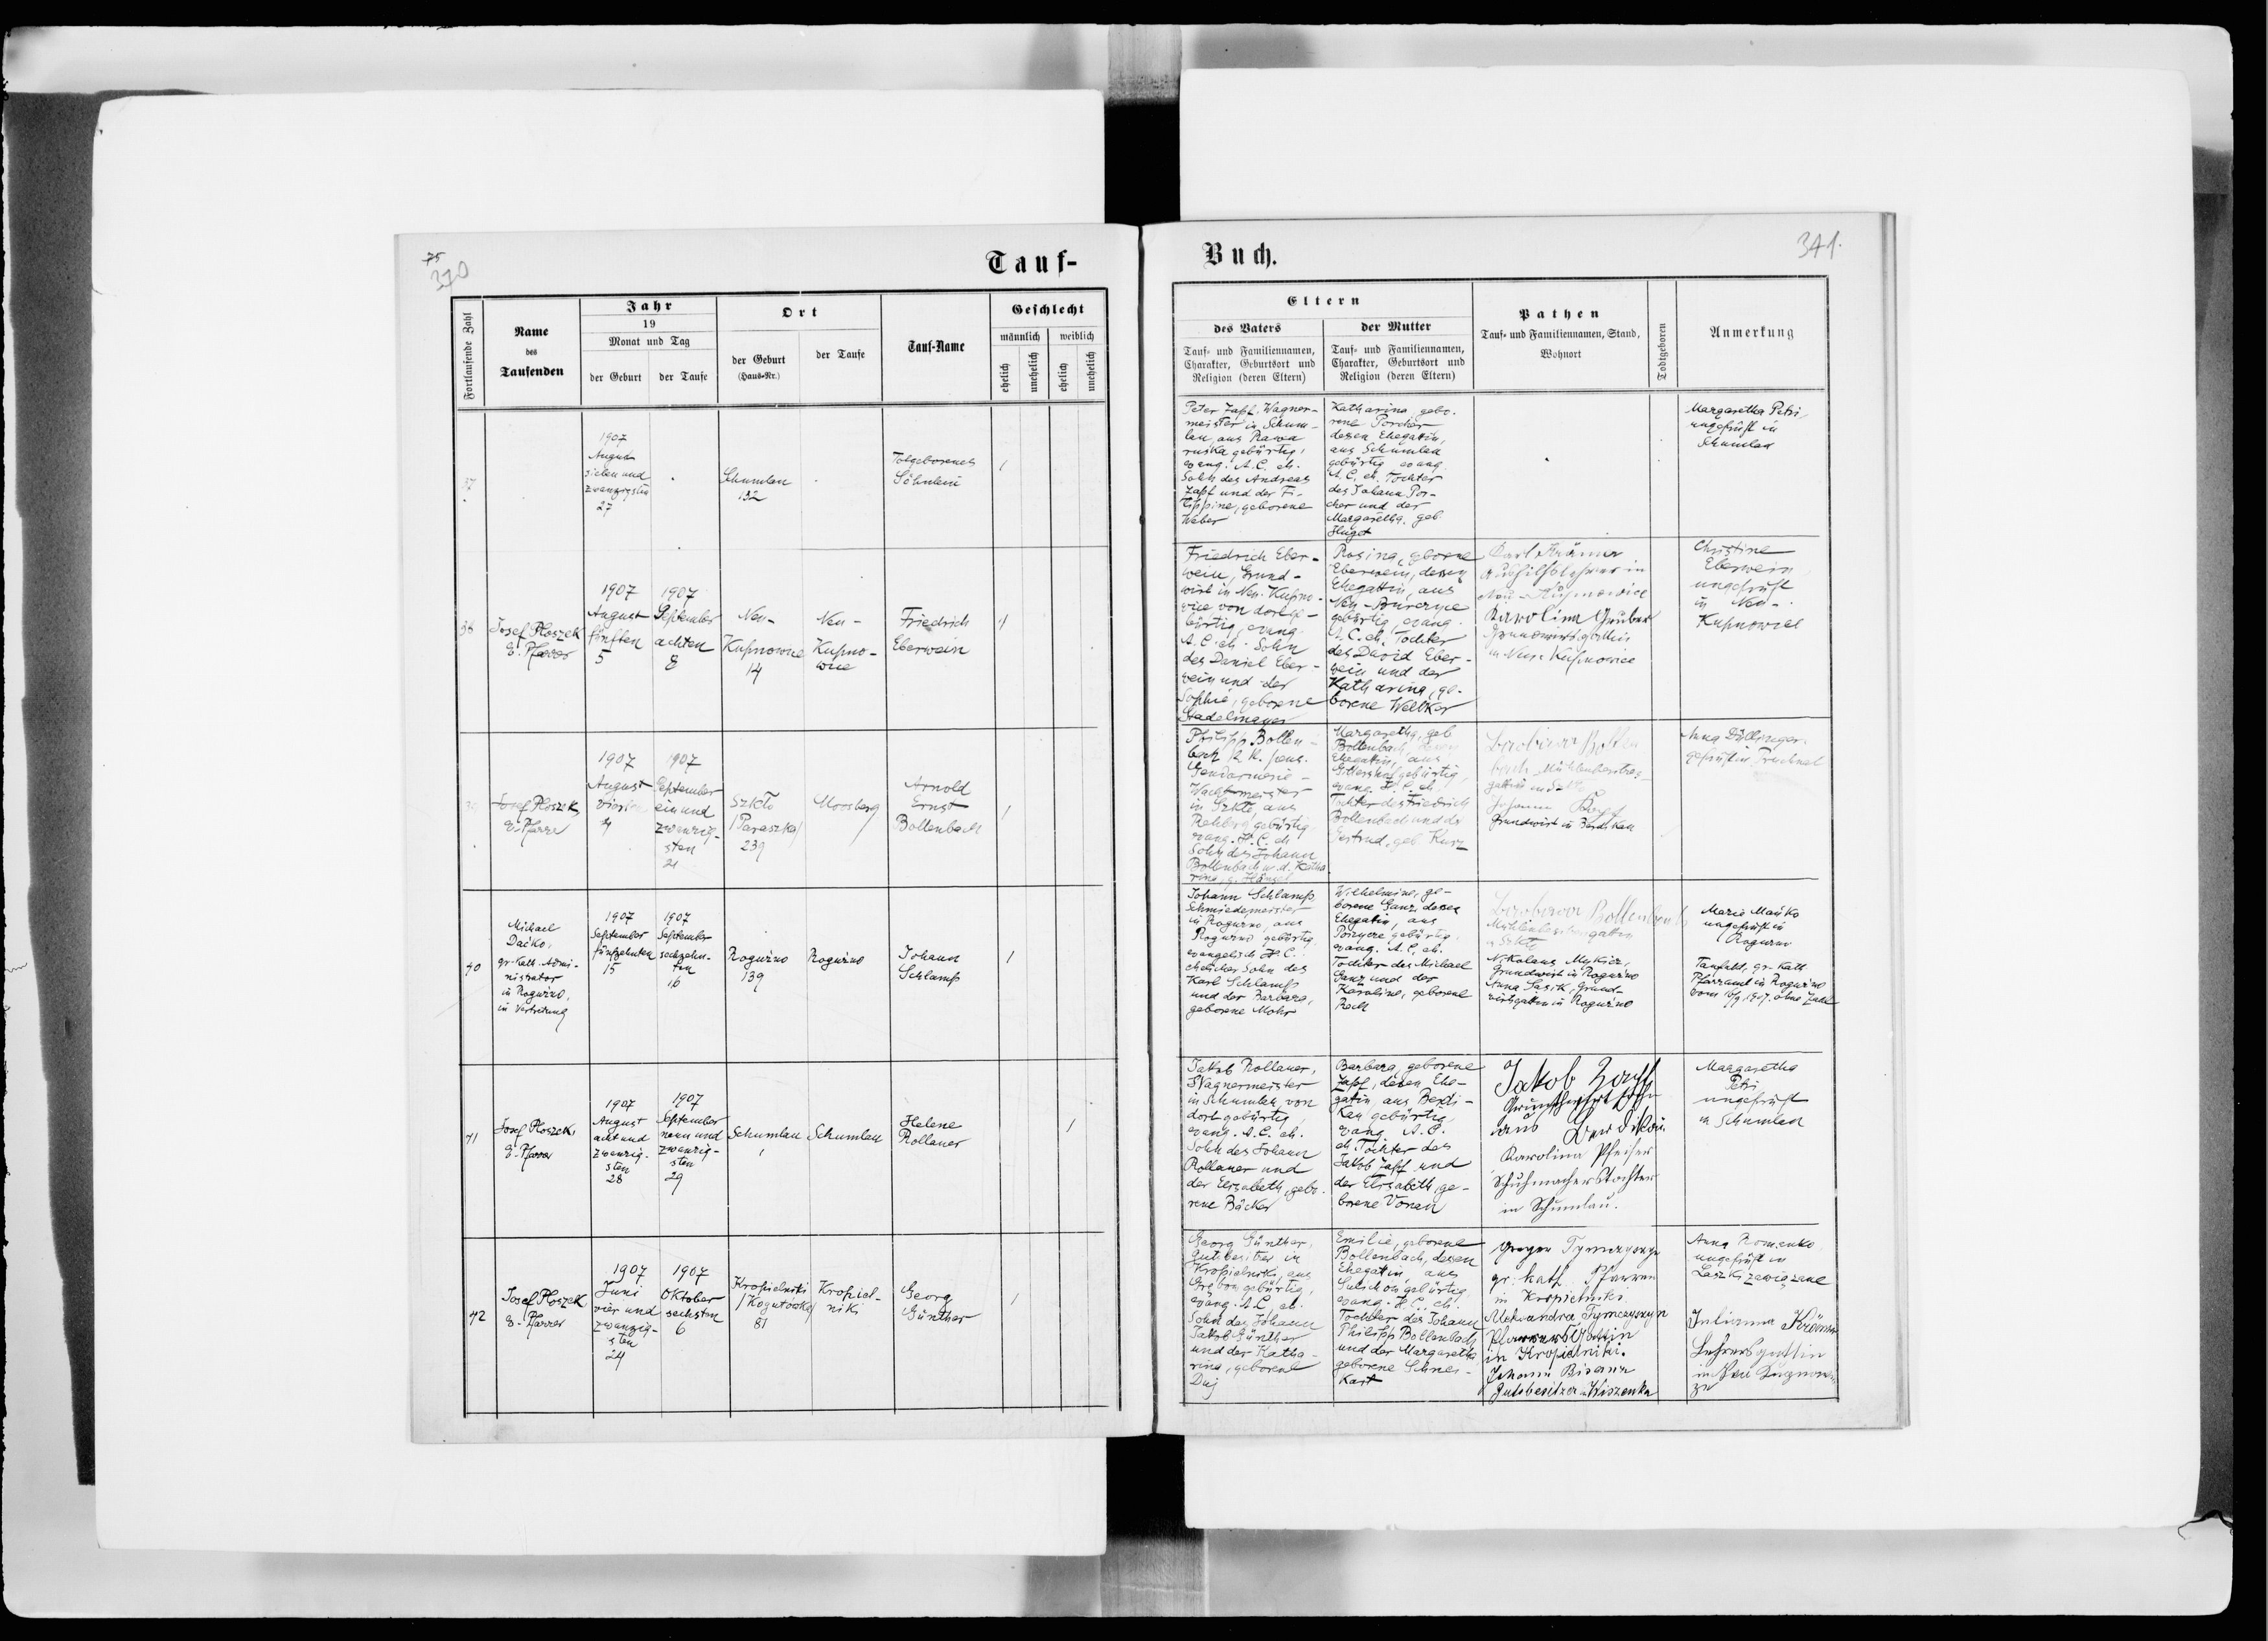 75
370
Tauf-
Fortlaufende Zahl
Name
des
Taufenden
Jahr
19
Monat und Tag
der Geburt
der Taufe
Ort
der Geburt
(Haus-Nr.)
der Taufe
Tauf-Name
Geschlecht
männlich
weiblich
ehelich
unehelich
ehelich
unehelich
37
1907
August
sieben und
zwanzigsten
27
Schumlau
132
Totgeborenes
Söhnlein
1
38
Josef Ploszek
E. Pfarrer
1907
August
fünften
5
1907
September
achten
8
Neu-
Kupnowice
14
Neu-
Kupno-
wice
Friedrich
Eberwein
1
Josef Ploszek
E. Pfarrer
1907
August
vierten
4
1907
September
ein und
zwanzig-
sten
21
Szkło
/Paraszka/
239
Moosberg
Arnold
Ernst
Bollenbach
1
40
Michael
Daćko,
gr. Kath. Admi-
nistrator
in Rogużno,
in Vertretung
1907
September
fünfzehnten
15
1907
September
sechzehn-
ten
16
Rogużno
139
Rogużno
Johann
Schlamp
1
41
Josef Ploszek,
E. Pfarrer
1907
August
acht und
zwanzig-
sten
28
1907
September
neun und
zwanzig-
sten
29
Schumlau
Schumlau
Helene
Rollauer
1
42
Josef Ploszek
E. Pfarrer
1907
Juni
vier und
zwanzig-
sten
24
1907
Oktober
sechsten
6
Kropielniki
/Kogutówka/
81
Kropiel-
niki
Georg
Günther
1
Buch.
341.
Eltern
des Vaters
Tauf- und Familiennamen,
Charakter, Geburtsort und
Religion (deren Eltern)
der Mutter
Tauf- und Familiennamen,
Charakter, Geburtsort und
Religion (deren Eltern)
Pathen
Tauf- und Familiennamen, Stand,
Wohnort
Todtgeboren
Anmerkung
Peter Zapf, Wagner-
meister in Schum-
lau, aus Rawa
ruska gebürtig,
evang. A.C. eh.
Sohn des Andreas
Zapf und der Fi-
lippine, geborene
Weber
Katharina, gebo-
rene Porcher
dessen Ehegattin,
aus Schumlau
gebürtig evang.
A.C. eh. Tochter
des Johann Por-
cher und der
Margaretha, geb.
Margaretha Petri,
ungeprüft in
Schumlau
Friedrich Eber-
wein, Grund-
wirt in Neu-Kupno-
wice von dort ge-
bürtig, evang.
A.C. eh. Sohn
des Daniel Eber-
wein und der
Sophie, geborene
Stadelmayer
Rosina, geborene
Eberwein, dessen
Ehegattin, aus
Neu-Burczyce
gebürtig, evang.
A.C. eh. Tochter
des David Eber-
wein und der
Katharina, ge-
borene Welker
Karl Krämer
Aushilfslehrer in
Neu-Kupnowice
Karolina Gruber
Grundwirtsgattin
in Neu Kupnowice
Christine
Eberwein
ungeprüft
in Neu-
Kupnowice
Philipp Bollen-
bach K.K. pens.
Gendarmerie-
Wachtmeister
in Szkło, aus
Rehberg gebürtig
evang. H.C. eh
Sohn des Johann
Bollenbach u. d. Katha
Margaretha, geb
Bollenbach, dessen
Ehegattin, aus
gebürtig,
evang. H.C. eh
Tochter des Friedrich
Bollenbach und der
Gertrud, geb. Kurz
Bollen
bach Mühlenbesitzers
gattin in Szkło
Johann
Grundwirt in Berdikau
Anna Döllinger
geprüft in Pruchnal
Johann Schlamp,
Schmiedemeister
in Rogużno, aus
Rogużno gebürtig,
evangelisch H.C.
ehelicher Sohn des
Karl Schlamp
und der Barbara,
geborene Mohr
Wilhelmine, ge-
borene Ganz, dessen
Ehegattin, aus
gebürtig,
evang. A.C. eh.
Tochter des Michael
Ganz und der
Karoline, geborene
Rech
Bollenbach
Mühlenbesitzersgattin
in Szkło
Nikolaus Mykicz,
Grundwirt in Rogużno
Anna Sasik, Grund-
wirtsgattin in Rogużno
Marie Mańko
ungeprüft in
Rogużno
Taufakt, gr. Kath.
Pfarramt in Rogużno
vom 16/9 1907. ohne Zahl
Jakob Rollauer,
Wagnermeister
in Schumlau von
dort gebürtig,
evang. A.C. eh.
Sohn des Johann
Rollauer und
der Elisabeth, gebo-
rene Bäcker
Barbara, geborene
Zapf, dessen Ehe-
gattin, aus Berdi-
kau gebürtig,
evang. A.C.
eh. Tochter des
Jakob Zapf und
der Elisabeth, ge-
borene Vonau
Jakob Zapf
aus Berdikau.
Karolina Pfeifer
Schuhmacherstochter
in Schumlau.
Margaretha
Petri
ungeprüft
in Schumlau
Georg Günther,
Gutsbesitzer in
Kropielniki, aus
gebürtig,
evang. A.C. eh.
Sohn des Johann
Jakob Günther
und der Katha-
rina, geborene
Duj
Emilie, geborene
Bollenbach, dessen
Ehegattin, aus
gebürtig,
evang. H.C. eh.
Tochter des Johann
Philipp Bollenbach
und der Margaretha
geborene Schnei-
kart
gr. kath. Pfarrer
in Kropielniki
Aleksandra Tymczyszyn
Pfarrersgattin
in Kropielniki.
Johann Bisanz
Gutsbesitzer in Wiszenka
Anna Romenko
ungeprüft in
Laszki zawiązane
Julianna Krämer
Lehrersgattin
in Neu Kupnowi-